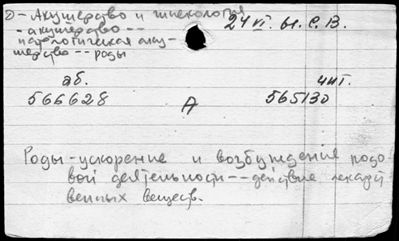 - Акушерство и гинекология
24 VI. Ы. С. В.
- акушерство --
патологическая аку-
шерство -- роды
аб.
чит.
566628
А
565130
Роды - ускорение и возбуждения родо
вой деятельности -- действие лекарст
венных веществ.